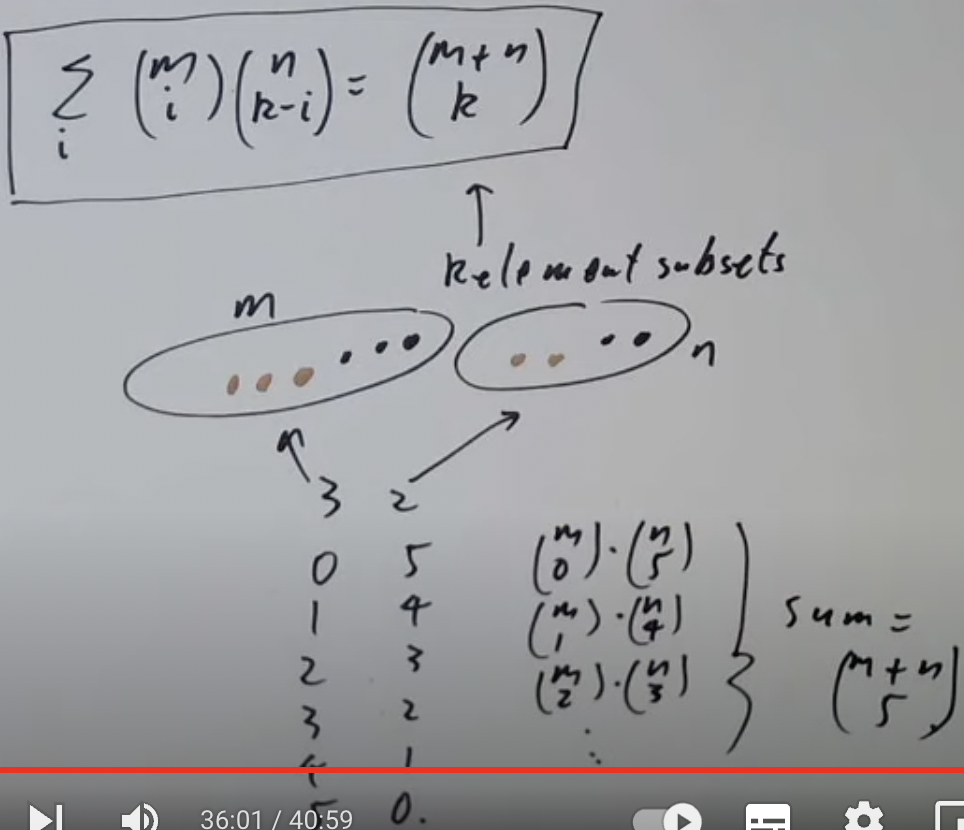 ∑ᵢ (m i)(n k-i) = (m+n k)
k element subsets
m
n
3 2
0 5 (m 0)·(n 5)
1 4 (m 1)·(n 4) sum =
2 3 (m 2)·(n 3) (m+n 5)
3 2 ⋮
4 1
5 0.
36:01 / 40:59